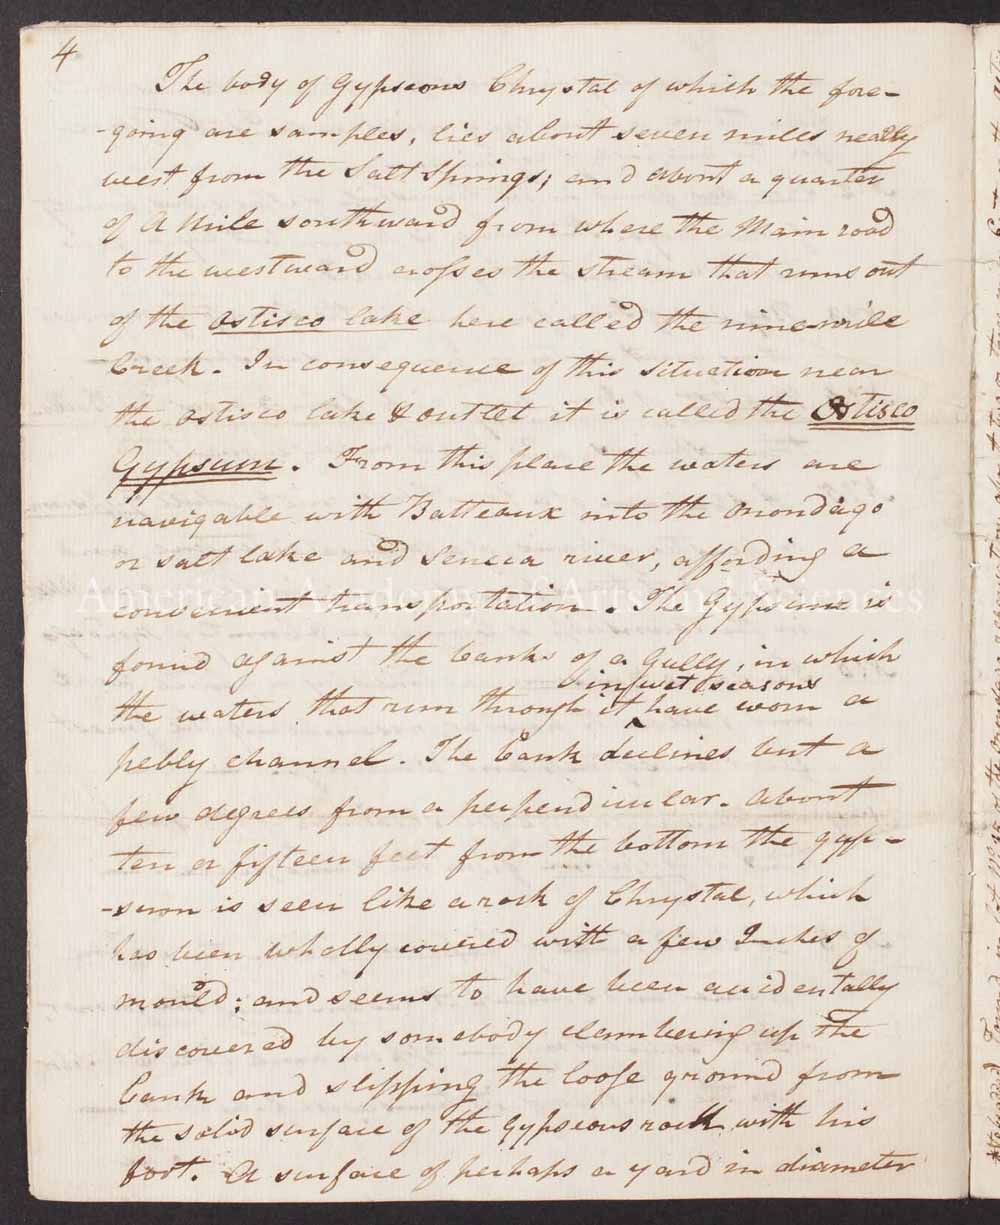 4
The body of Gypseous Chrystal of which the fore-
-going are samples, lies about seven miles nearly
west from the Salt Springs; and about a quarter
of A Mile southward from where the Main road
to the westward crosses the stream that runs out
of the Ostisco lake here called the nine-mile
Creek. In consequence of this situation near
the Ostisco lake & outlet it is called the Ostisco
Gypsum. From this place the waters are
navigable with Batteaux into the Onondago
or salt lake and Seneca river, affording a
convenient transportation. The Gypsum is
found against the bank of a Gully, in which
in wet seasons
the waters that run through it ^ have worn a
pebly channel. The bank declines but a
few degrees from a perpendicular. About
ten or fifteen feet from the bottom the gyp-
-sum is seen like a rock of Chrystal, which
has been wholly covered with a few Inches of
mould; and seems to have been accidentally
discovered by somebody clambering up the
bank and slipping the loose ground from
the solid surface of the Gypseous rock with his
foot. A surface of perhaps a yard in diameter
American Academy of Arts and Sciences